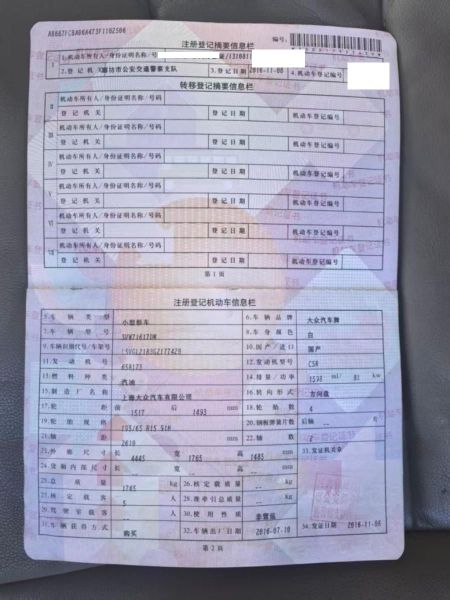 注册登记摘要信息栏
编号:
1.机动车所有人/身份证明名称/号码 证/131081
2.登记机关 廊坊市公安交通警察支队 3.登记日期 2016-11-08 4.机动车登记编号
转移登记摘要信息栏
II 机动车所有人/身份证明名称/号码
登记机关 登记日期 机动车登记编号
III 机动车所有人/身份证明名称/号码
登记机关 登记日期 机动车登记编号
IV 机动车所有人/身份证明名称/号码
登记机关 登记日期 机动车登记编号
V 机动车所有人/身份证明名称/号码
登记机关 登记日期 机动车登记编号
VI 机动车所有人/身份证明名称/号码
登记机关 登记日期 机动车登记编号
VII 机动车所有人/身份证明名称/号码
登记机关 登记日期 机动车登记编号
第1页
注册登记机动车信息栏
5.车辆类型 小型轿车 6.车辆品牌 大众汽车牌
7.车辆型号 8.车身颜色 白
9.车辆识别代号/车架号 10.国产/进口 国产
11.发动机号 658173 12.发动机型号 CSR
13.燃料种类 汽油 14.排量/功率 1598 ml/ 81 kw
15.制造厂名称 上海大众汽车有限公司 16.转向形式 方向盘
17.轮距 前 1517 后 1493 mm 18.轮胎数 4
19.轮胎规格 185/65 R15 20.钢板弹簧片数 后轴 --
21.轴距 2610 mm 22.轴数 2
23.外廓尺寸 长 4445 宽 1765 高 1485 mm 33.发证机关章
24.货厢内部尺寸 长 -- 宽 -- 高 -- mm
25.总质量 1765 kg 26.核定载质量 -- kg
27.核定载客 5 人 28.准牵引总质量 -- kg
29.驾驶室载客 -- 人 30.使用性质 非营运
31.车辆获得方式 购买 32.车辆出厂日期 2016-07-10 34.发证日期 2016-11-08
第2页